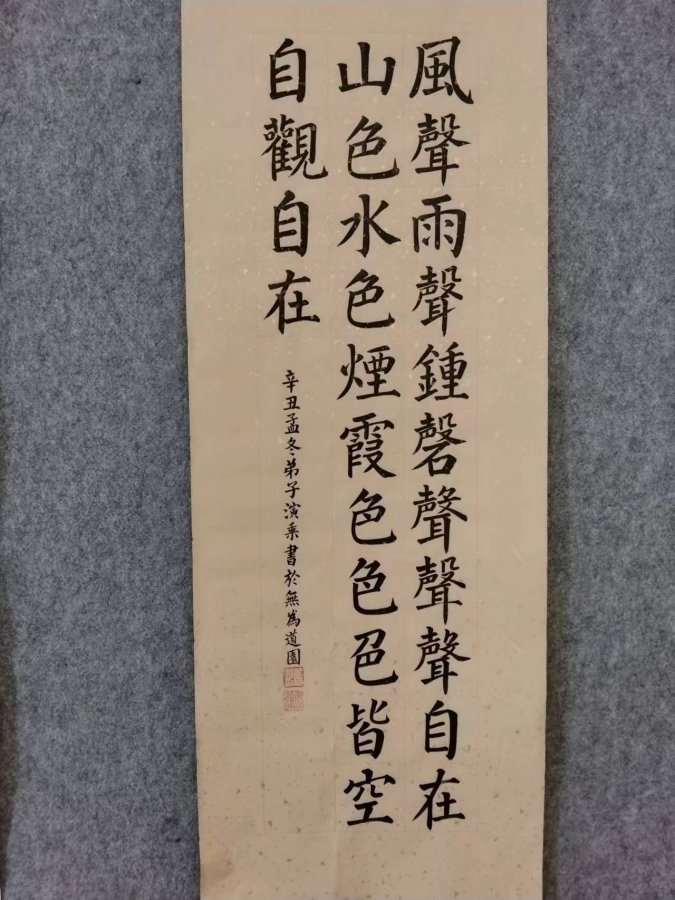 風聲雨聲鍾磬聲聲聲自在
山色水色煙霞色色色皆空
自觀自在
辛丑孟冬弟子演乘書於無為道園